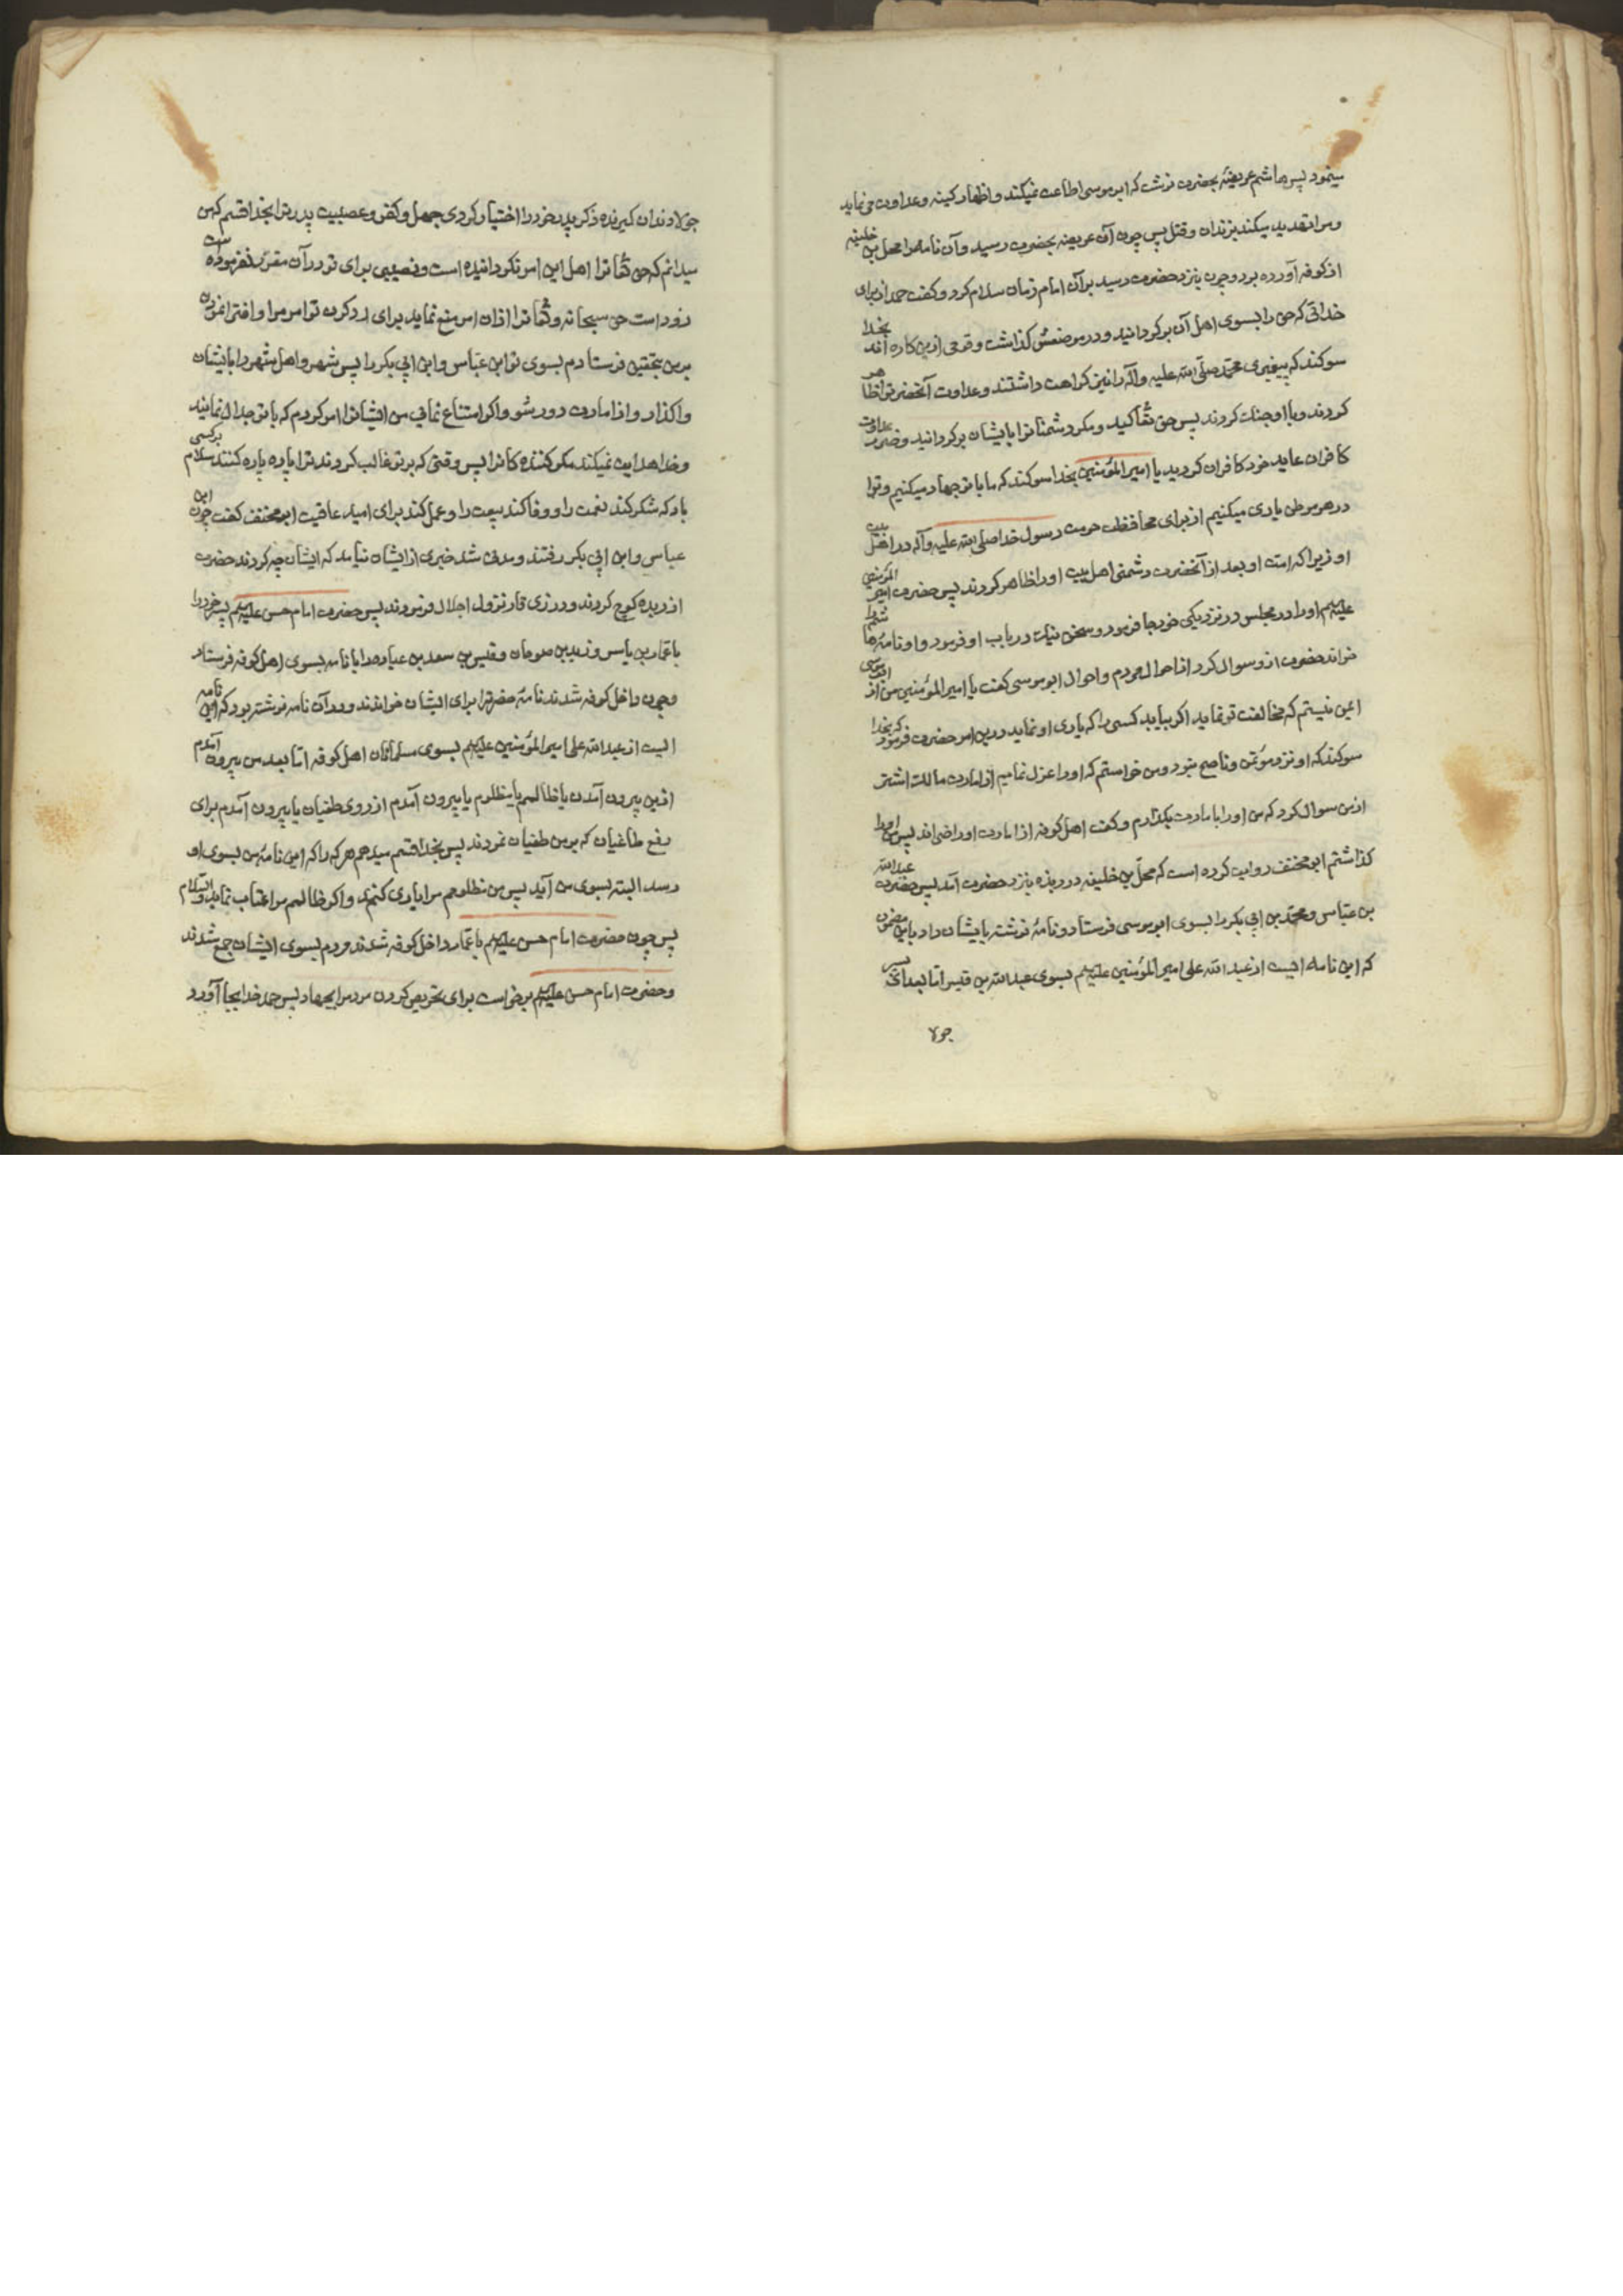 مینمود پس هاشم عریضهٔ بحضرت نوشت که ابو موسی اطاعت نمیکند و اظهار کینه و عداوت می نماید
و مرا تهدید میکند بزندان و قتل پس چون آن عریضه بحضرت رسید و آن نامه را محل بن خلیفه
از کوفه آورده بود و چون بنزد حضرت رسید بر آن امام زمان سلام کرد و کفت حمد از برای
خدائی که حق را بسوی اهل آن برکردانید و در موضعش کذاشت و قومی ازین کاره اند بخدا
سوکند که پیغمبری محمد صلی الله علیه و آله را نیز کراهت داشتند و عداوت آنحضرت را ظاهر
کردند و با او جنك کردند پس حق تعالی کید و مکر دشمنانرا بایشان برکردانید و ضرر عداوت
کافران عاید خود کافران کردید یا امیر المؤمنین بخدا سوکند که ما با تو جهاد میکنیم و ترا
در هر موطن یاری میکنیم از برای محافظت حرمت رسول خدا صلی الله علیه و آله در اهل بیت
او زیرا که امت او بعد از آنحضرت دشمنی اهل بیت او را ظاهر کردند پس حضرت امیر المؤمنین
علیه السلم او را در مجلس در نزدیکی خود جا فرمود و سخن نیك در باب او فرمود و او نامهٔ هاشم را
خواند حضرت ازو سوال کرد از احوال مردم و احوال ابو موسی کفت یا امیر المؤمنین من از ابو موسی
ایمن نیستم که مخالفت تو نماید اکر بیابد کسی را که یاری او نماید درین امر حضرت فرمود که بخدا
سوکند که او نزد من مؤتمن و ناصح نبود و من خواستم که او را عزل نمایم از امارت مالك اشتر
از من سوال کرد که من او را بامارت بکذارم و کفت اهل کوفه از امارت او راضی اند پس من او را
کذاشتم ابو مخنف روایت کرده است که محل بن خلیفه در ربذه بنزد حضرت آمد پس حضرت عبد الله
بن عباس و محمد بن ابی بکر را بسوی ابو موسی فرستاد و نامهٔ نوشته بایشان داد باین مضمون
که این نامه ایست از عبد الله علی امیر المؤمنین علیه السلم بسوی عبد الله بن قیس اما بعد ای پسر
جولا
جولا و دندان کیرنده ذکر پدر خود را اختیار کردی جهل و کفر و عصبیت پدر ترا بخدا قسم که من
میدانم که حق تعالی ترا اهل این امر نکردانیده است و نصیبی برای تو در آن مقرر نفرموده است
زود است حق سبحانه و تعالی ترا ازان امر منع نماید برای رد کردن تو امر مرا و افترا نمودن
بر من بتحقیق فرستادم بسوی تو ابن عباس و ابن ابی بکر را پس شهر و اهل شهر را بایشان
واکذار و از امارت دور شو و اکر امتناع نمائی من ایشانرا امر کردم که با تو جدال نمایند
و خدا هدایت نمیکند مکر کننده کانرا پس وقتی که بر تو غالب کردند ترا پاره پاره کنند سلام بر کسی
باد که شکر کند نعمت را و وفا کند بیعت را و عمل کند برای امید عاقبت ابو مخنف کفت چون ابن
عباس و ابن ابی بکر رفتند و مدتی شد خبری از ایشان نیامد که ایشان چه کردند حضرت
از ربذه کوچ کردند و در ذی قار نزول اجلال فرمودند پس حضرت امام حسن علیه السلم پسر خود را
با عمار بن یاسر و زید بن صوحان و قیس بن سعد بن عباده را با نامه بسوی اهل کوفه فرستاد
و چون داخل کوفه شدند نامهٔ حضرترا برای ایشان خواندند و در آن نامه نوشته بود که این نامه
ایست از عبد الله علی امیر المؤمنین علیه السلم بسوی مسلمانان اهل کوفه اما بعد من بیرون آمدم
ازین بیرون آمدن یا ظالمم یا مظلوم یا بیرون آمدم از روی طغیان یا بیرون آمدم برای
دفع طاغیان که بر من طغیان نمودند پس بخدا قسم میدهم هر که را که این نامهٔ من بسوی او
رسد البته بسوی من آید پس من مظلومم مرا یاری کنند و اکر ظالمم مرا عتاب نماید و السلام
پس چون حضرت امام حسن علیه السلم با عمار داخل کوفه شدند مردم بسوی ایشان جمع شدند
و حضرت امام حسن علیه السلم برخواست برای تحریص کردن مردم را بجهاد پس حمد خدا بجا آورد